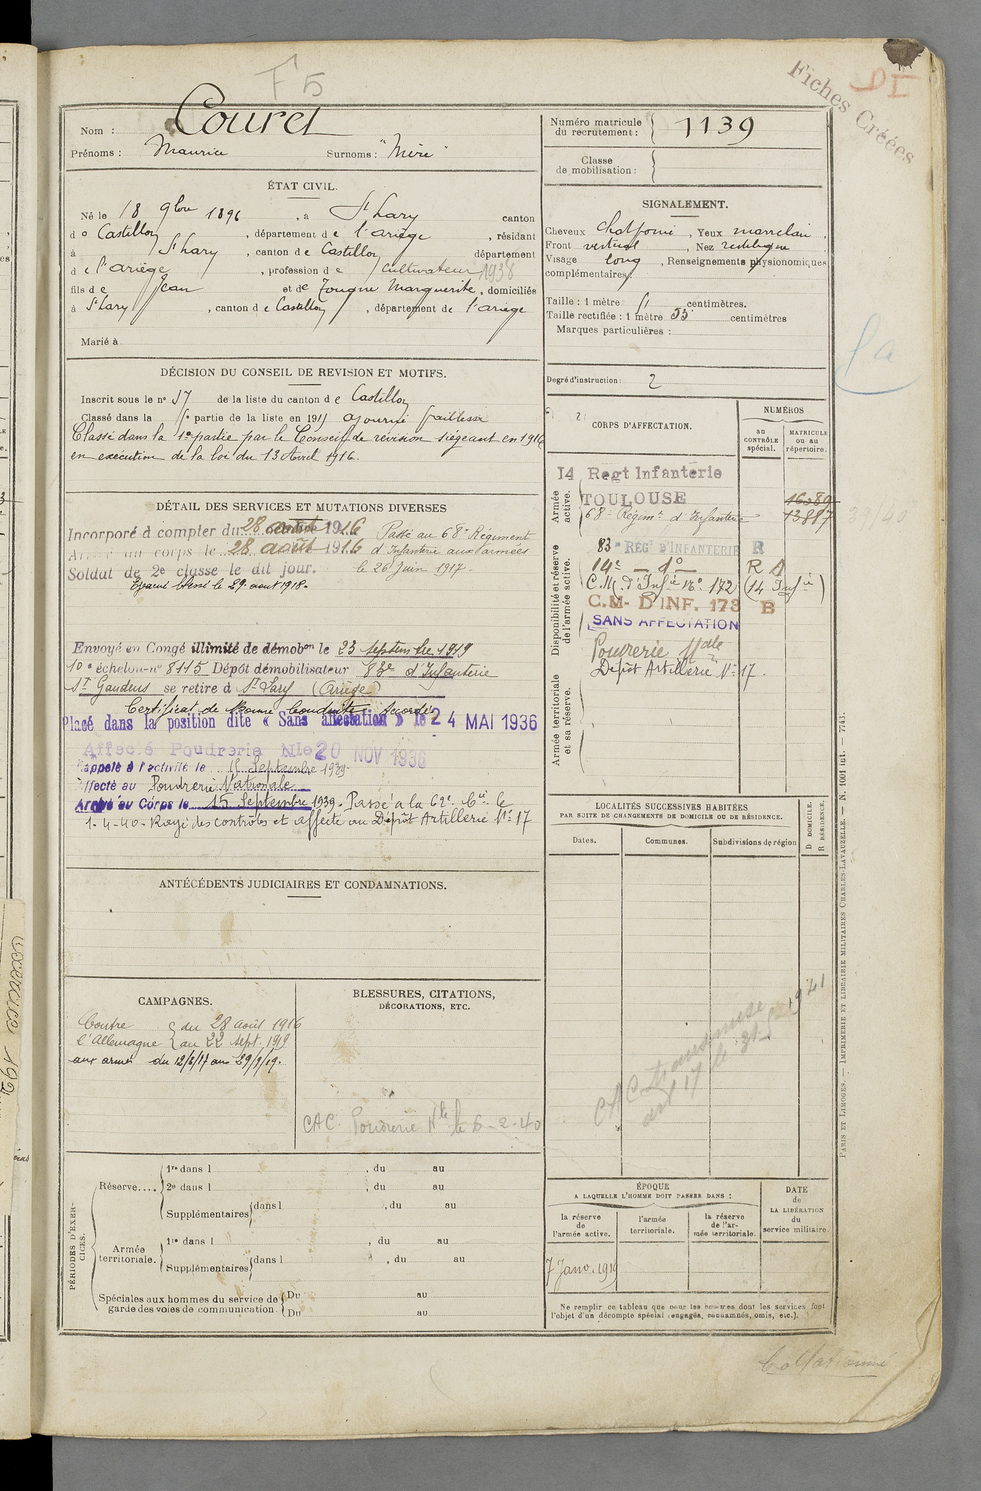 F 5
Fiches Créées
DI
Nom : Couret
Prénoms : Maurice Surnoms : "Méri"
Numéro matricule du recrutement : 1139
Classe de mobilisation :
ÉTAT CIVIL.
Né le 18 9bre 1896, à St Lary canton
de Castillon, département de l'Ariège, résidant
à St Lary, canton de Castillon département
de l'Ariège, profession de Cultivateur 1938
fils de Jean et de Tougne Marguerite, domiciliés
à St Lary, canton de Castillon, département de l'Ariège
Marié à
SIGNALEMENT.
Cheveux Yeux
Front vertical, Nez rectiligne
Visage long, Renseignements physionomiques
complémentaires
Taille : 1 mètre centimètres.
Taille rectifiée : 1 mètre 55 centimètres
Marques particulières :
Degré d'instruction : 2
DÉCISION DU CONSEIL DE REVISION ET MOTIFS.
Inscrit sous le no 17 de la liste du canton de Castillon
Classé dans la partie de la liste en 1915 ajourné faiblesse
Classé dans la 1e partie par le Conseil de révision siégeant en 1916
en exécution de la loi du 13 Avril 1916.
DÉTAIL DES SERVICES ET MUTATIONS DIVERSES
Incorporé à compter du 28 août 1916
Arrivé au corps le 28 août 1916
Soldat de 2e classe le dit jour.
Passé au 68e Régiment
d'Infanterie aux armées
le 26 Juin 1917.
blessé le 29 aout 1918.
Envoyé en Congé illimité de démobon le 23 septembre 1919
10e échelon no 8115 Dépôt démobilisateur 83e d'Infanterie
St Gaudens se retire à St Lary (Ariège)
Certificat de Bonne Conduite Accordé
Placé dans la position dite « Sans affectation » le 24 MAI 1936
Affecté Poudrerie Nle 20 NOV 1938
Rappelé à l'activité le Septembre 1939
Affecté au Poudrerie Nationale
Arrivé au Corps le 15 Septembre 1939. Passé à la 62e Cie le
1-4-40. Rayé des contrôles et affecté au Dépôt Artillerie No 17
CORPS D'AFFECTATION.
NUMÉROS
au CONTRÔLE spécial.
MATRICULE ou au répertoire.
Armée active.
14 Regt Infanterie
TOULOUSE 16389
68e Régimt d'Infanterie 13887
Disponibilité et réserve de l'armée active.
83e REGt D'INFANTERIE R
14e
C.M. d'Infie No 172 (14 Infie)
C.M. D'INF. 173 B
SANS AFFECTATION
Poudrerie Nale
Dépôt Artillerie No 17.
Armée territoriale et sa réserve.
LOCALITÉS SUCCESSIVES HABITÉES
PAR SUITE DE CHANGEMENTS DE DOMICILE OU DE RÉSIDENCE.
Dates. Communes. Subdivisions de région
D DOMICILE.
R RÉSIDENCE.
ANTÉCÉDENTS JUDICIAIRES ET CONDAMNATIONS.
CAMPAGNES.
Contre l'Allemagne
du 28 août 1916
au 22 sept. 1919
aux armées du 12/6/17 au
BLESSURES, CITATIONS,
DÉCORATIONS, ETC.
CAC. Poudrerie Nle le 6-2-40
CAC transmise
art 17 le 1941
PÉRIODES D'EXERCICES.
Réserve.... 1re dans l , du au
2e dans l , du au
Supplémentaires dans l , du au
Armée territoriale. 1re dans l , du au
Supplémentaires dans l , du au
Spéciales aux hommes du service de garde des voies de communication. Du au
Du au
ÉPOQUE
A LAQUELLE L'HOMME DOIT PASSER DANS :
la réserve de l'armée active.
l'armée territoriale.
la réserve de l'armée territoriale.
DATE de LA LIBÉRATION du service militaire.
Ne remplir ce tableau que pour les hommes dont les services font
l'objet d'un décompte spécial (engagés, condamnés, omis, etc.).
PARIS ET LIMOGES. — IMPRIMERIE ET LIBRAIRIE MILITAIRES CHARLES-LAVAUZELLE. — N. 1001 int. — 7743.
Collationné